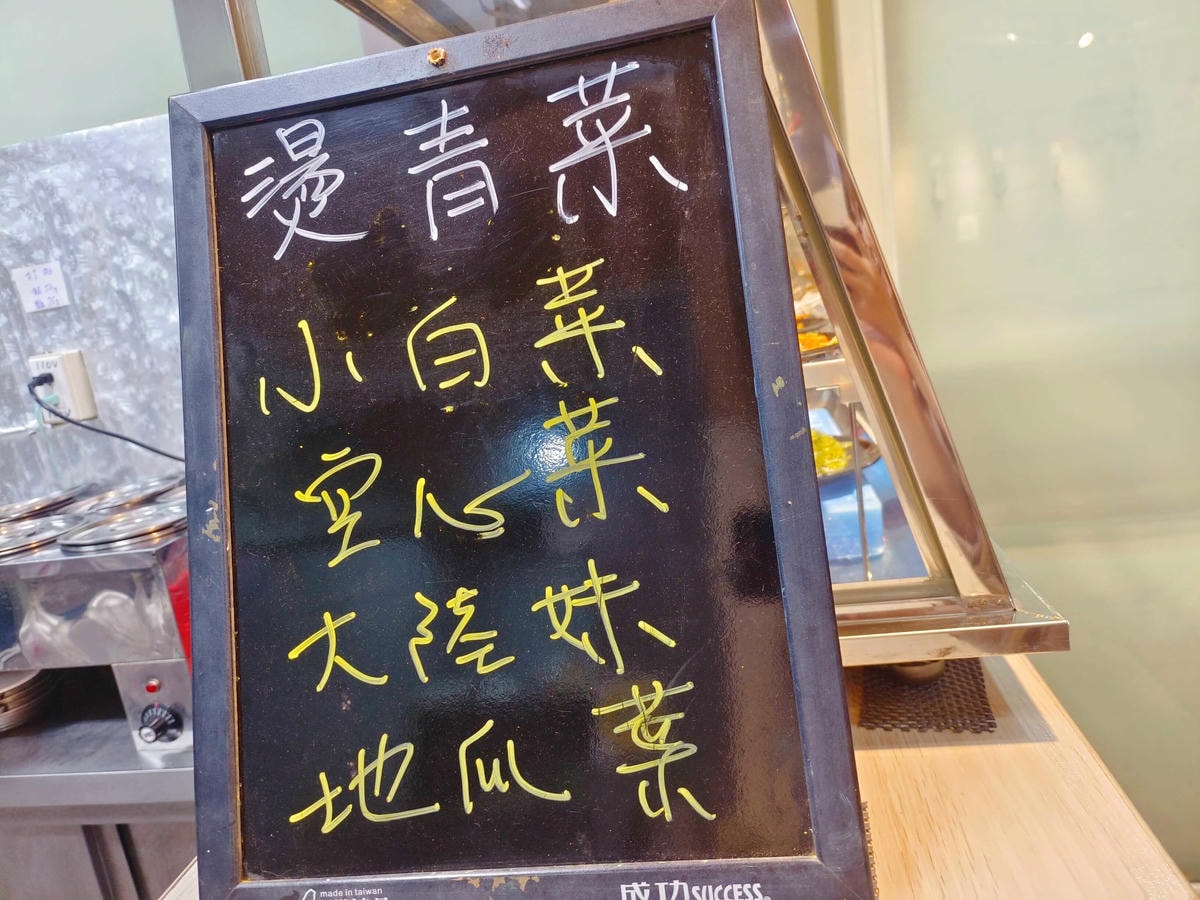 燙青菜
小白菜
空心菜
大陸妹
地瓜葉
110V
made in taiwan
成功SUCCESS